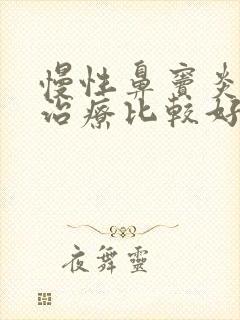 慢性鼻竇炎
治療比較好
夜舞靈